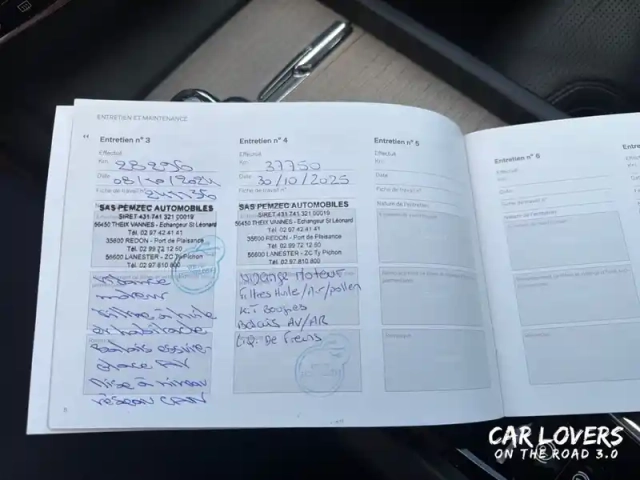 ENTRETIEN ET MAINTENANCE
Entretien n° 3
Effectué
Km 28296
Date 08/10/2024
Fiche de travail n°
SAS PEMZEC AUTOMOBILES
SIRET 431 741 321 00019
56450 THEIX VANNES - Echangeur St Léonard
Tél. 02 97 42 41 41
35600 REDON - Port de Plaisance
Tél. 02 99 72 12 60
56600 LANESTER - ZC Ty Pichon
Tél. 02 97 810 800
Vidange
moteur
Filtre à huile
et habitacle
Balais essuie-
glace AV
Mise à niveau
réseau CAN
Entretien n° 4
Effectué
Km 37750
Date 30/10/2025
Fiche de travail n°
SAS PEMZEC AUTOMOBILES
SIRET 431 741 321 00019
56450 THEIX VANNES - Echangeur St Léonard
Tél. 02 97 42 41 41
35600 REDON - Port de Plaisance
Tél. 02 99 72 12 60
56600 LANESTER - ZC Ty Pichon
Tél. 02 97 810 800
Vidange Moteur
Filtres Huile/Air/pollen
KiT Bougies
Balais AV/AR
Liq. De Freins
Entretien n° 5
Effectué
Km
Date
Fiche de travail n°
Nature de l'entretien
Entretien n° 6
Effectué
CAR LOVERS
ON THE ROAD 3.0